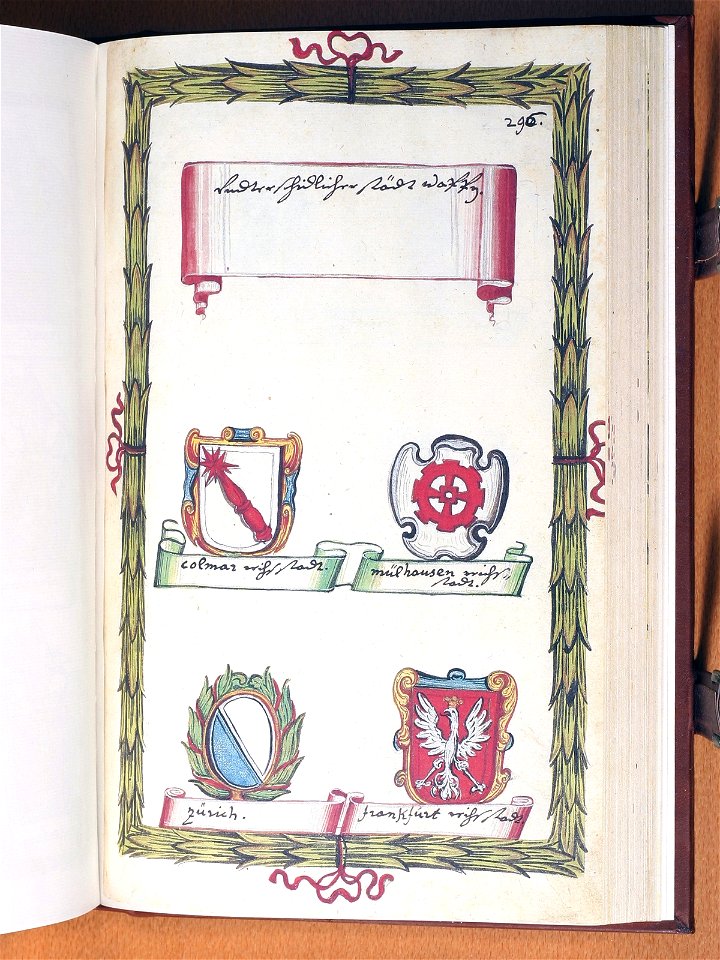 296.
Vndterschidlicher städt Wappen.
colmar reichsstadt.
mülhausen reichs=
stadt.
zürich.
frankfurt reichsstadt